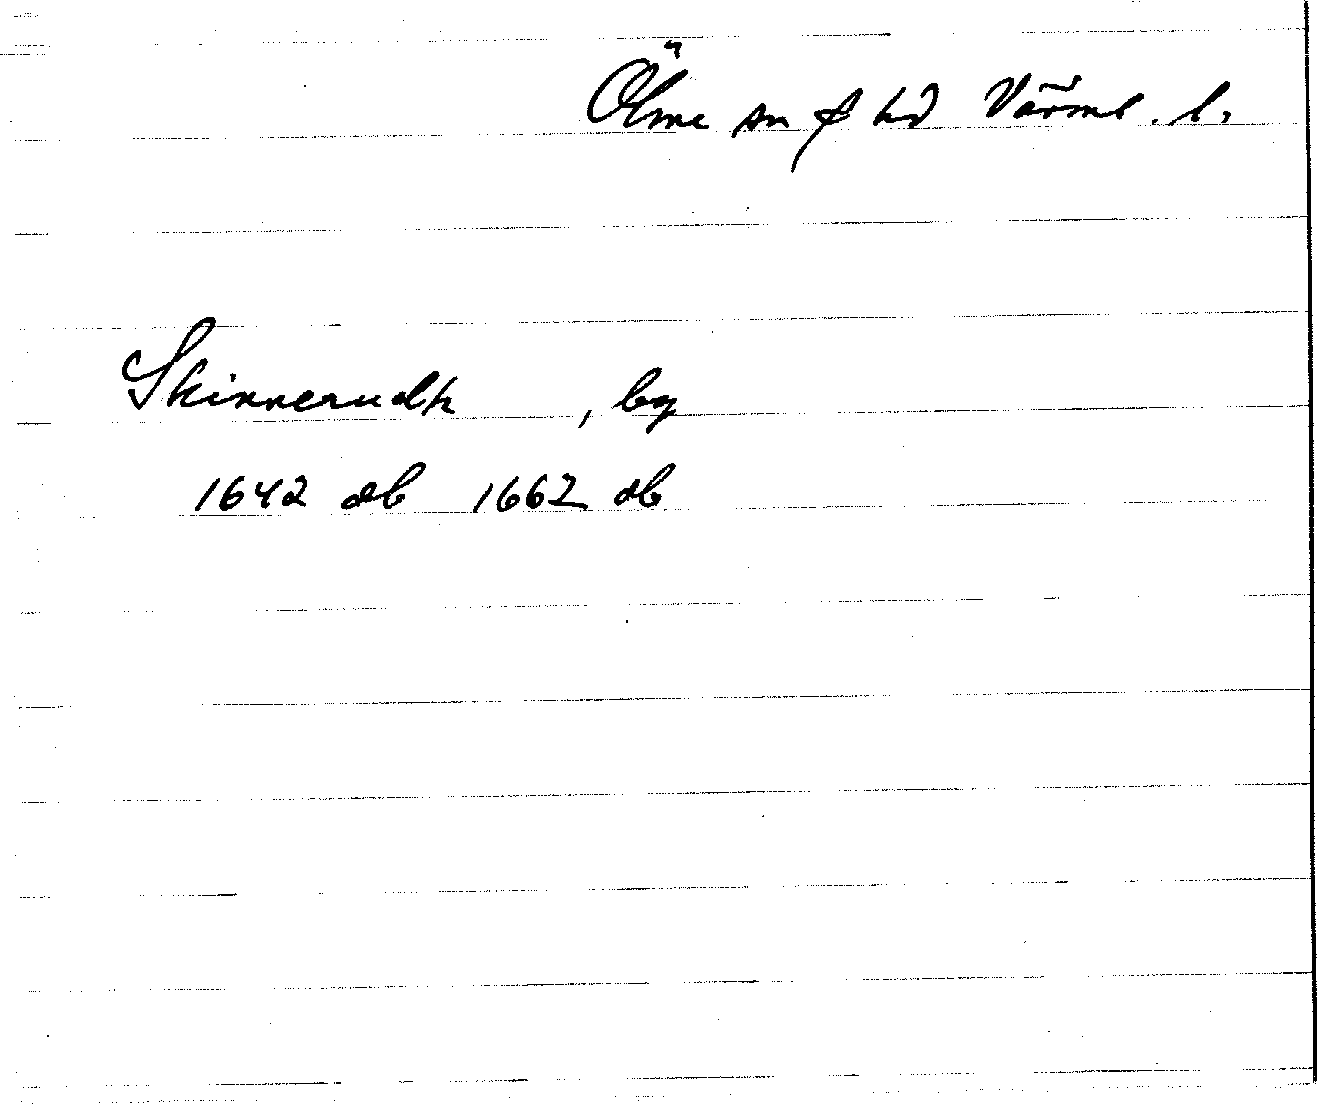 Ölme sn o hd Värml. l.
Skinnerudh, by
1642 db 1662 db